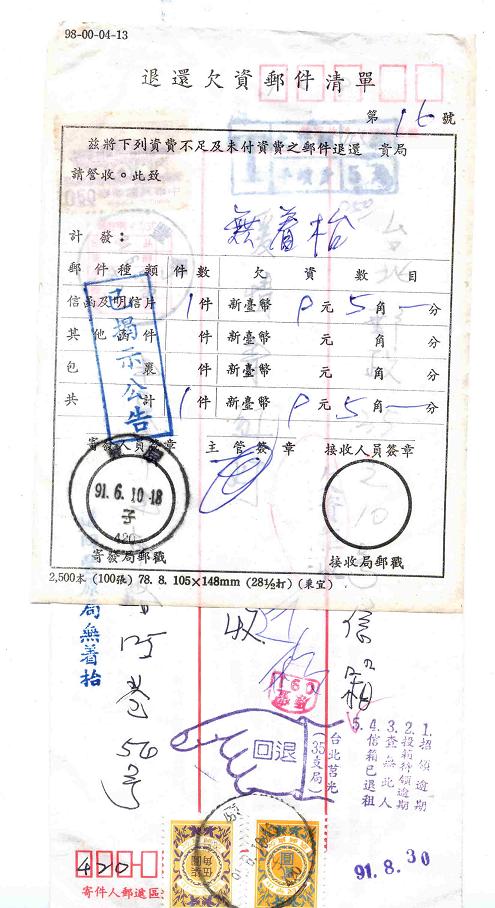 98-00-04-13
退還欠資郵件清單
第 16 號
茲將下列資費不足及未付資費之郵件退還 貴局
請詧收。此致
無着枱
計發:
郵件種類 件數 欠資數目
信函及明信片 1件 新臺幣 0元 5角 一分
其他函件 件 新臺幣 元 角 分
包裹 件 新臺幣 元 角 分
共計 1件 新臺幣 0元 5角 一分
已揭示公告
寄發人員簽章 主管簽章 接收人員簽章
91.6.10-18
子
420
寄發局郵戳 接收局郵戳
2,500本 (100張) 78. 8. 105×148mm (28½打) (東宜)
局無着枱
信箱
收
巷56号
退回
台北莒光
(35支局)
1.招領逾期
2.投箱待領逾期
3.查無此人
4.信箱已退租
5.
91.8.30
420
寄件人郵遞區